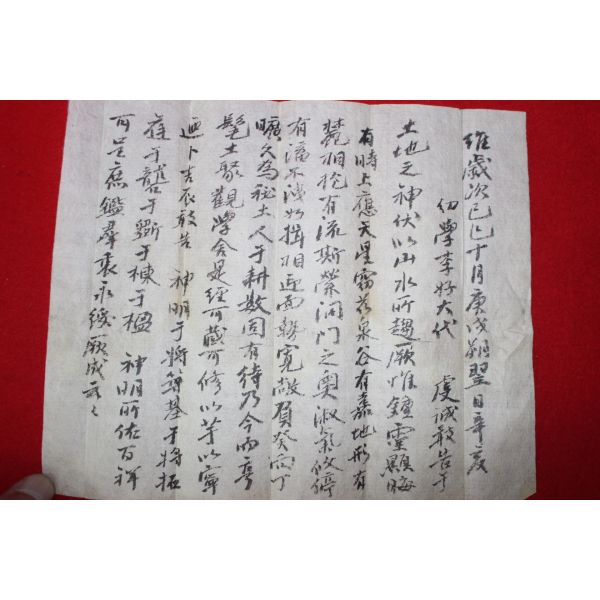 維歲次己巳十月庚戌朔翌日辛亥
幼學李好大代 虔誠敢告于
土地之神伏以山水所趨厥惟鍾靈顯晦
有時上應天星窈 泉谷有嘉地形有
麓相抱有流斯縈洞門之奧淑氣攸停
有 不淺 揖相迎面勢寬敞負癸向丁
曠久爲秘土人于耕數 有待乃今而
髦士聚觀學舍是經可藏可修以茅以寧
廼卜吉辰敢告 神明于將 基于將拓
 于礱于斲于棟于楹 神明所佑百祥
可 庶鑑羣衷永綏厥成云云